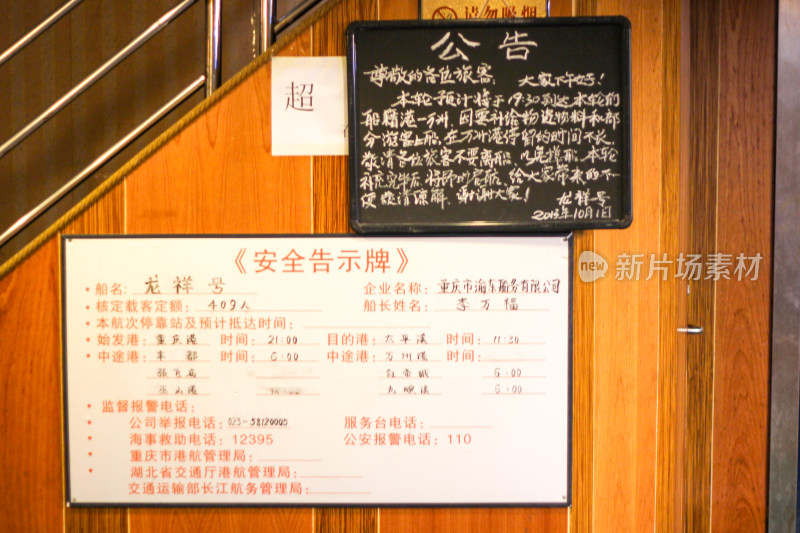 请勿吸烟
超
公告
尊敬的各位旅客: 大家下午好!
本轮预计将于19:30到达本轮的
船籍港—万州,因要补给物造物料和部
分游客上船,在万州港停留的时间不长,
敬请各位旅客不要离船,以免误船.本轮
补充完毕后,将即时启航,给大家带来的不
便敬请谅解,谢谢大家!
龙祥号
2013年10月1日
《安全告示牌》
船名: 龙祥号 企业名称: 重庆市海东船务有限公司
核定载客定额: 409人 船长姓名: 李万福
本航次停靠站及预计抵达时间:
始发港: 重庆港 时间: 21:00 目的港: 太平溪 时间: 11:30
中途港: 丰都 时间: 6:00 中途港: 万州港 时间:
6:00
6:00
监督报警电话:
公司举报电话: 023-58120005 服务台电话:
海事救助电话: 12395 公安报警电话: 110
重庆市港航管理局:
湖北省交通厅港航管理局:
交通运输部长江航务管理局:
new 新片场素材